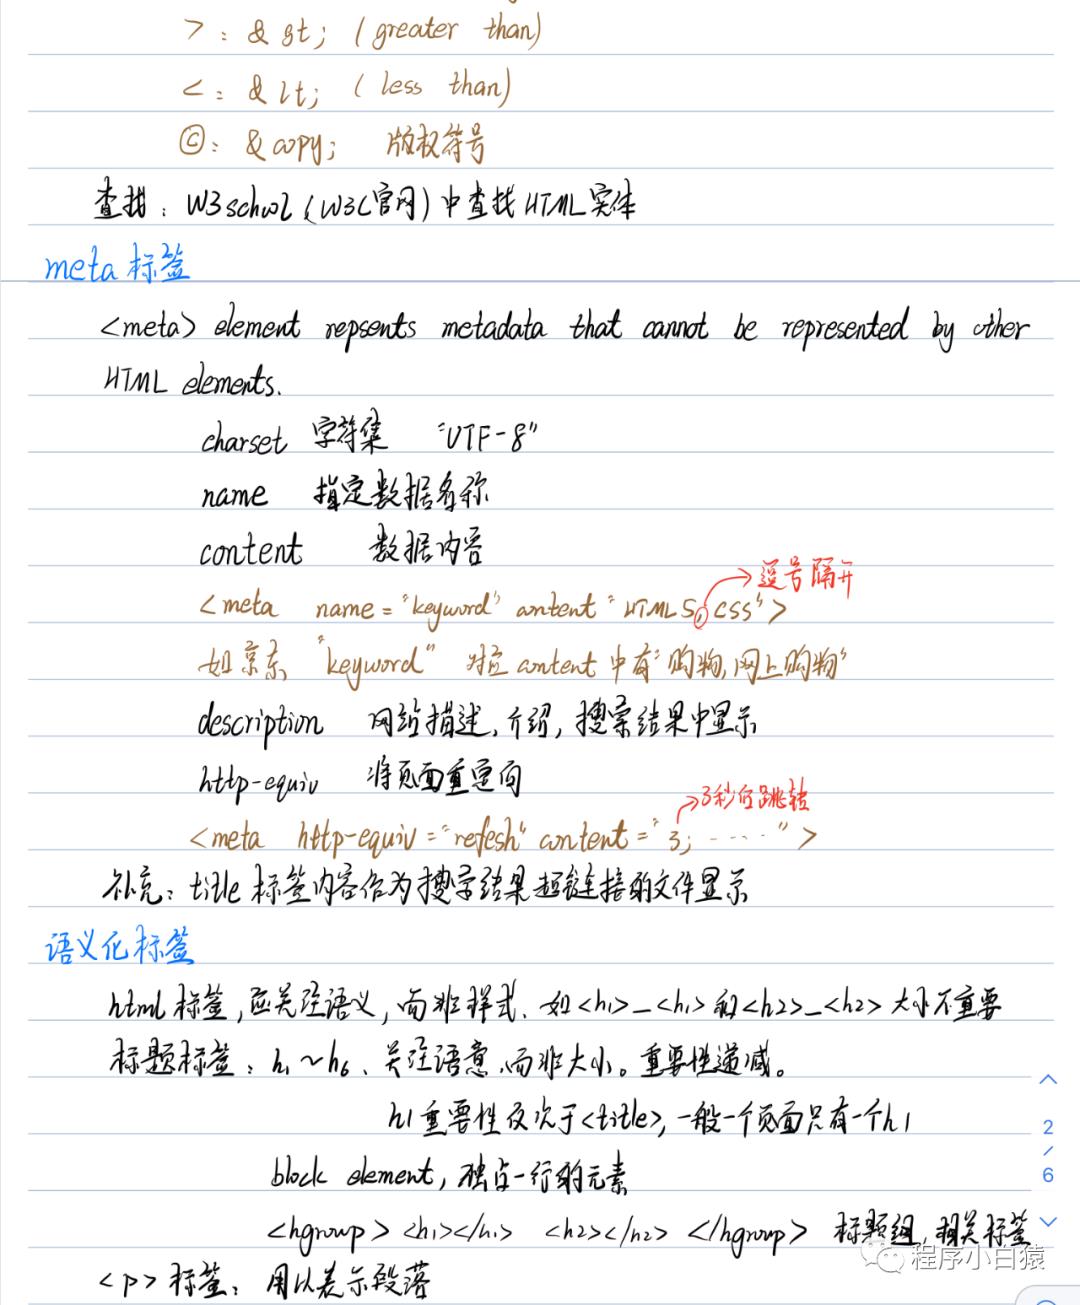 >: &gt; (greater than)
<: &lt; (less than)
©: &copy; 版权符号
查找: W3school (W3C官网) 中查找HTML实体
meta 标签
<meta> element repsents metadata that cannot be represented by other
HTML elements.
charset 字符集 "UTF-8"
name 指定数据名称
content 数据内容
逗号隔开
<meta name="keyword" content "HTML5, css">
如京东 "keyword" 对应 content 中有"购物,网上购物"
description 网站描述,介绍,搜索结果中显示
http-equiv 将页面重定向
3秒后跳转
<meta http-equiv="refesh" content="3; ----">
补充: title 标签内容作为搜索结果超链接的文件显示
语义化标签
html标签,应关注语义,而非样式. 如<h1>_<h1>和<h2>_<h2> 大小不重要
标题标签: h1~h6、关注语意,而非大小。重要性递减。
h1重要性仅次于<title>,一般一个页面只有一个h1
block element, 独占一行的元素
<hgroup> <h1></h1> <h2></h2> </hgroup> 标题组,相关标签
<p> 标签: 用以表示段落
2
/
6
程序小白猿